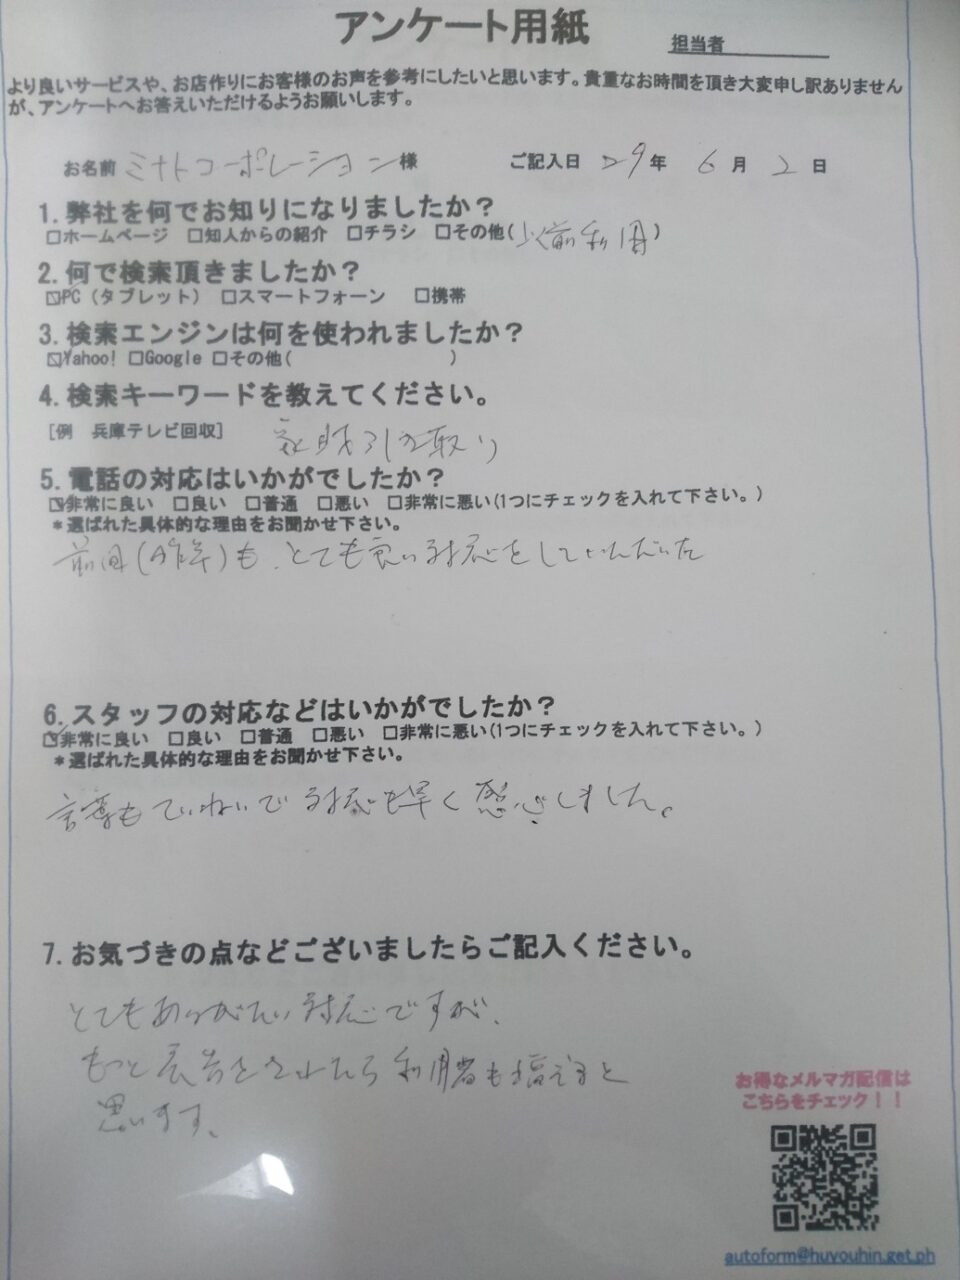 アンケート用紙
担当者
より良いサービスや、お店作りにお客様のお声を参考にしたいと思います。貴重なお時間を頂き大変申し訳ありません
が、アンケートへお答えいただけるようお願いします。
お名前 ミナトコーポレーション 様 ご記入日 29 年 6 月 2 日
1. 弊社を何でお知りになりましたか？
□ホームページ □知人からの紹介 □チラシ □その他( 以前利用 )
2. 何で検索頂きましたか？
☑PC（タブレット） □スマートフォーン □携帯
3. 検索エンジンは何を使われましたか？
☑Yahoo! □Google □その他( )
4. 検索キーワードを教えてください。
[例 兵庫テレビ回収] 家財引き取り
5. 電話の対応はいかがでしたか？
☑非常に良い □良い □普通 □悪い □非常に悪い(1つにチェックを入れて下さい。)
＊選ばれた具体的な理由をお聞かせ下さい。
前回(昨年)も、とても良い対応をしていただいた
6. スタッフの対応などはいかがでしたか？
☑非常に良い □良い □普通 □悪い □非常に悪い(1つにチェックを入れて下さい。)
＊選ばれた具体的な理由をお聞かせ下さい。
言葉もていねいで対応も早く感心しました。
7. お気づきの点などございましたらご記入ください。
とてもありがたい対応ですが、
もっと広告をされたら利用者も増えると
思います。
お得なメルマガ配信は
こちらをチェック！！
autoform@huyouhin.get.ph